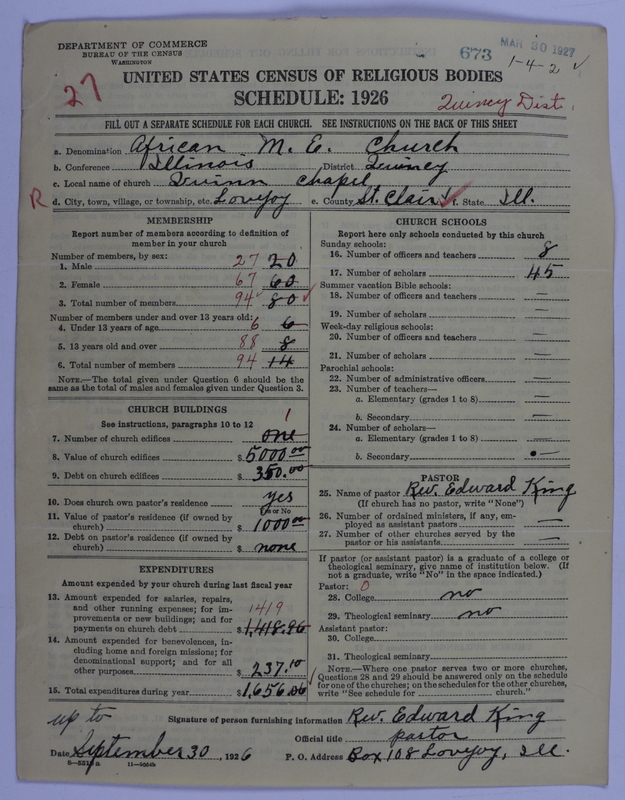 DEPARTMENT OF COMMERCE
BUREAU OF THE CENSUS
WASHINGTON
673
MAR 30 1927
1-4-2 ✓
27
UNITED STATES CENSUS OF RELIGIOUS BODIES
SCHEDULE: 1926
Quincy Dist.
FILL OUT A SEPARATE SCHEDULE FOR EACH CHURCH. SEE INSTRUCTIONS ON THE BACK OF THIS SHEET
a. Denomination African M. E. Church
b. Conference Illinois, District Quincy
c. Local name of church Quinn Chapel
R d. City, town, village, or township, etc. Lovejoy e. County St. Clair f. State Ill.
MEMBERSHIP
Report number of members according to definition of
member in your church
Number of members, by sex:
1. Male 27 20
2. Female 67 60
3. Total number of members 94 80
Number of members under and over 13 years old:
4. Under 13 years of age 6 6
5. 13 years old and over 88 8
6. Total number of members 94 14
NOTE.—The total given under Question 6 should be the
same as the total of males and females given under Question 3.
CHURCH BUILDINGS
See instructions, paragraphs 10 to 12
1
7. Number of church edifices one
8. Value of church edifices $5000.00
9. Debt on church edifices $350.00
10. Does church own pastor's residence yes
Yes or No
11. Value of pastor's residence (if owned by
church) $1000.00
12. Debt on pastor's residence (if owned by
church) $ none
EXPENDITURES
Amount expended by your church during last fiscal year
13. Amount expended for salaries, repairs,
and other running expenses; for im-
provements or new buildings; and for
payments on church debt 1419 $1,418.96
14. Amount expended for benevolences, in-
cluding home and foreign missions; for
denominational support; and for all
other purposes $237.10
15. Total expenditures during year $1,656.06
CHURCH SCHOOLS
Report here only schools conducted by this church
Sunday schools:
16. Number of officers and teachers 8
17. Number of scholars 45
Summer vacation Bible schools:
18. Number of officers and teachers —
19. Number of scholars —
Week-day religious schools:
20. Number of officers and teachers —
21. Number of scholars —
Parochial schools:
22. Number of administrative officers —
23. Number of teachers—
a. Elementary (grades 1 to 8) —
b. Secondary —
24. Number of scholars—
a. Elementary (grades 1 to 8) —
b. Secondary —
PASTOR
25. Name of pastor Rev. Edward King
(If church has no pastor, write "None")
26. Number of ordained ministers, if any, em-
ployed as assistant pastors —
27. Number of other churches served by the
pastor or his assistants —
If pastor (or assistant pastor) is a graduate of a college or
theological seminary, give name of institution below. (If
not a graduate, write "No" in the space indicated.)
Pastor: 0
28. College no
29. Theological seminary no
Assistant pastor:
30. College
31. Theological seminary
NOTE.—Where one pastor serves two or more churches,
Questions 28 and 29 should be answered only on the schedule
for one of the churches; on the schedules for the other churches,
write "See schedule for church."
up to
Signature of person furnishing information Rev. Edward King
Official title pastor
Date September 30, 1926 P. O. Address Box 108 Lovejoy, Ill.